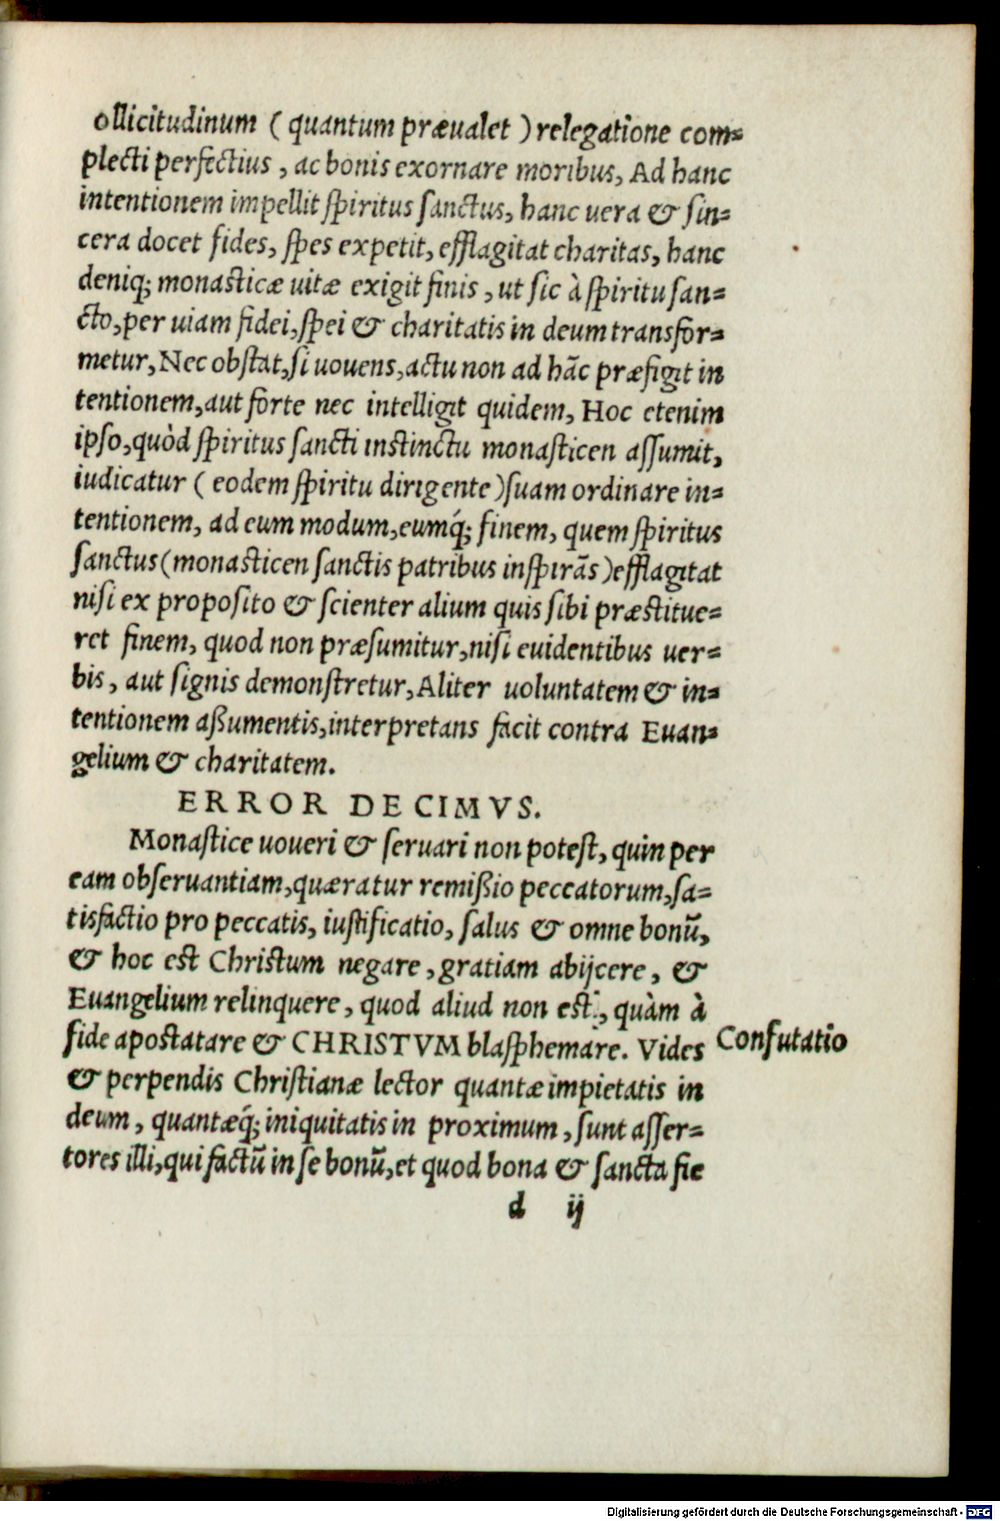 ollicitudinum ( quantum præualet ) relegatione com⸗
plecti perfectius , ac bonis exornare moribus, Ad hanc
intentionem impellit spiritus sanctus, hanc uera & sin⸗
cera docet fides, spes expetit, efflagitat charitas, hanc
deniq; monasticæ uitæ exigit finis , ut sic à spiritu san⸗
cto, per uiam fidei, spei & charitatis in deum transfor⸗
metur, Nec obstat, si uouens, actu non ad hāc præfigit in
tentionem, aut forte nec intelligit quidem, Hoc etenim
ipso, quòd spiritus sancti instinctu monasticen assumit,
iudicatur ( eodem spiritu dirigente ) suam ordinare in⸗
tentionem, ad eum modum, eumq́; finem, quem spiritus
sanctus (monasticen sanctis patribus inspirās ) efflagitat
nisi ex proposito & scienter alium quis sibi præstitue⸗
ret finem, quod non præsumitur, nisi euidentibus uer⸗
bis , aut signis demonstretur, Aliter uoluntatem & in⸗
tentionem aßumentis, interpretans facit contra Euan⸗
gelium & charitatem.
ERROR DECIMVS.
Monastice uoueri & seruari non potest, quin per
eam obseruantiam, quæratur remißio peccatorum, sa⸗
tisfactio pro peccatis, iustificatio, salus & omne bonū,
& hoc est Christum negare , gratiam abijcere , &
Euangelium relinquere , quod aliud non est, quàm à
fide apostatare & CHRISTVM blasphemare. Vides Confutatio
& perpendis Christianæ lector quantæ impietatis in
deum , quantæq́; iniquitatis in proximum , sunt asser⸗
tores illi, qui factū in se bonū, et quod bona & sancta fie
d ij
Digitalisierung gefördert durch die Deutsche Forschungsgemeinschaft - DFG